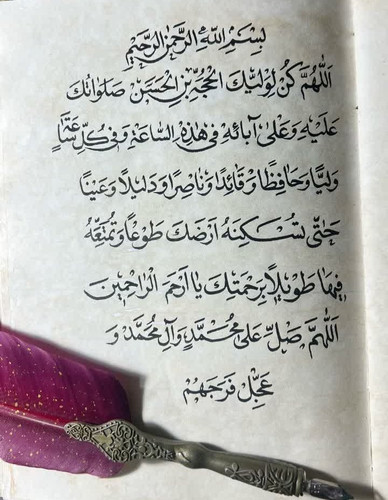 بِسْمِ اللهِ الرَّحْمٰنِ الرَّحِيْمِ
اَللّٰهُمَّ كُنْ لِوَلِيِّكَ الْحُجَّةِ بْنِ الْحَسَنِ صَلَوَاتُكَ
عَلَيْهِ وَعَلٰى آبَائِهِ فِي هٰذِهِ السَّاعَةِ وَفِي كُلِّ سَاعَةٍ
وَلِيًّا وَحَافِظًا وَقَائِدًا وَنَاصِرًا وَدَلِيْلًا وَعَيْنًا
حَتّٰى تُسْكِنَهُ اَرْضَكَ طَوْعًا وَتُمَتِّعَهُ
فِيهَا طَوِيْلًا بِرَحْمَتِكَ يَا اَرْحَمَ الرَّاحِمِيْنَ
اَللّٰهُمَّ صَلِّ عَلٰى مُحَمَّدٍ وَآلِ مُحَمَّدٍ وَ
عَجِّلْ فَرَجَهُمْ